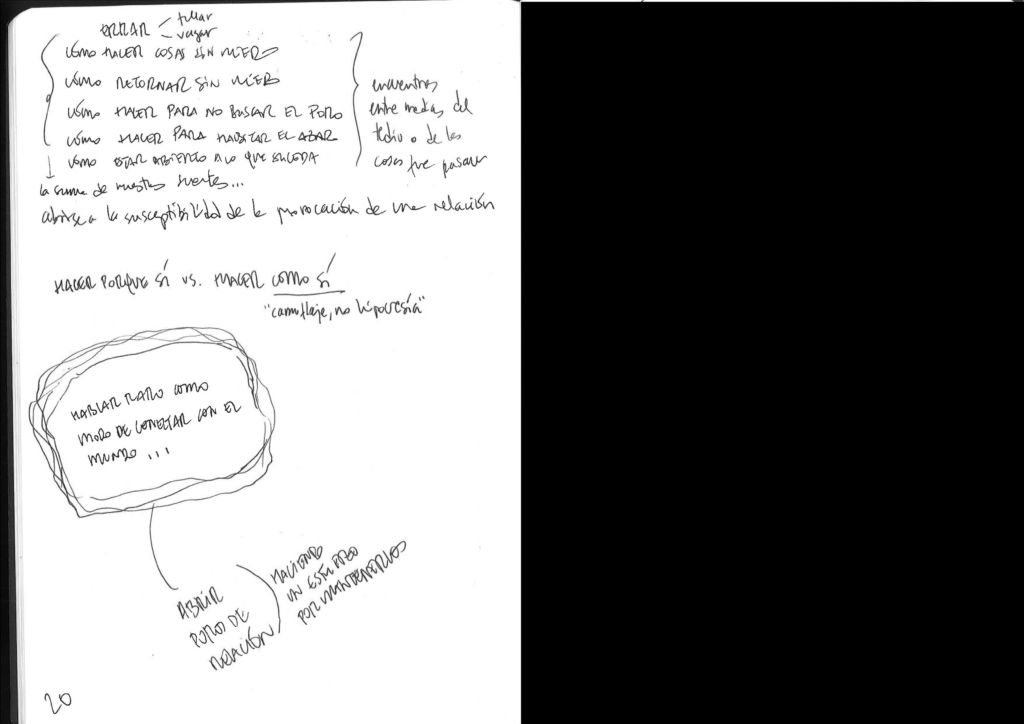 ERRAR
fallar
vagar
CÓMO HACER COSAS SIN MIEDO
CÓMO RETORNAR SIN MIEDO
CÓMO HACER PARA NO BUSCAR EL FORO
CÓMO HACER PARA HABITAR EL AZAR
CÓMO ESTAR ABIERTO A LO QUE SUCEDA
encuentros
entre medias del
tedio o de las
cosas que pasan
la suma de nuestras suertes...
abrirse a la susceptibilidad de la provocación de una relación
HACER PORQUE SÍ VS. HACER COMO SÍ
"camuflaje, no hipocresía"
HABLAR RARO COMO
MODO DE CONECTAR CON EL
MUNDO ...
ABRIR
POROS DE
RELACIÓN
HACIENDO
UN ESFUERZO
POR MANTENERLOS
20